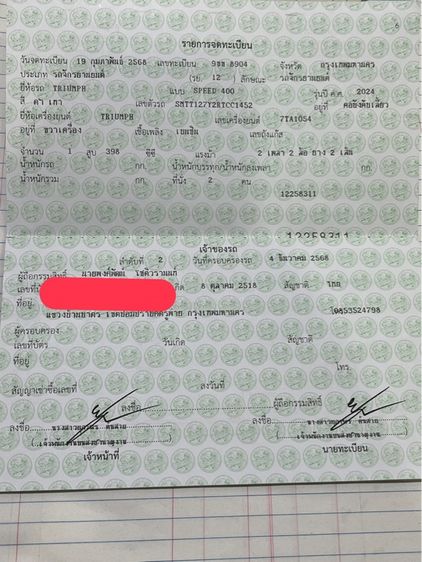 6
รายการจดทะเบียน
วันจดทะเบียน 19 กุมภาพันธ์ 2568 เลขทะเบียน 9ขฆ 8904 จังหวัด กรุงเทพมหานคร
ประเภท รถจักรยานยนต์ (รย. 12) ลักษณะ รถจักรยานยนต์
ยี่ห้อรถ TRIUMPH แบบ SPEED 400 รุ่นปี ค.ศ. 2024
สี ดำ เทา เลขตัวรถ SMTT127Y2RTCC1452 อยู่ที่ คอยึดคันเลี้ยว
ยี่ห้อเครื่องยนต์ TRIUMPH เลขเครื่องยนต์ 7TA1054
อยู่ที่ ขวาเครื่อง เชื้อเพลิง เบนซิน เลขถังแก๊ส
จำนวน 1 สูบ 398 ซีซี แรงม้า 2 เพลา 2 ล้อ ยาง 2 เส้น
น้ำหนักรถ กก. น้ำหนักบรรทุก/น้ำหนักลงเพลา กก.
น้ำหนักรวม กก. ที่นั่ง 2 คน
12258311
12258311
เจ้าของรถ
ลำดับที่ 2 วันที่ครอบครองรถ 4 ธันวาคม 2568
ผู้ถือกรรมสิทธิ์
เลขที่บัตร เกิด 8 ตุลาคม 2518 สัญชาติ ไทย
ที่อยู่
กรุงเทพมหานคร โ0853524798
ผู้ครอบครอง
เลขที่บัตร วันเกิด สัญชาติ
ที่อยู่ โทร
สัญญาเช่าซื้อเลขที่ ลงวันที่
ลงชื่อ ผู้ถือกรรมสิทธิ์
ลงชื่อ ลงชื่อ
เจ้าหน้าที่ นายทะเบียน